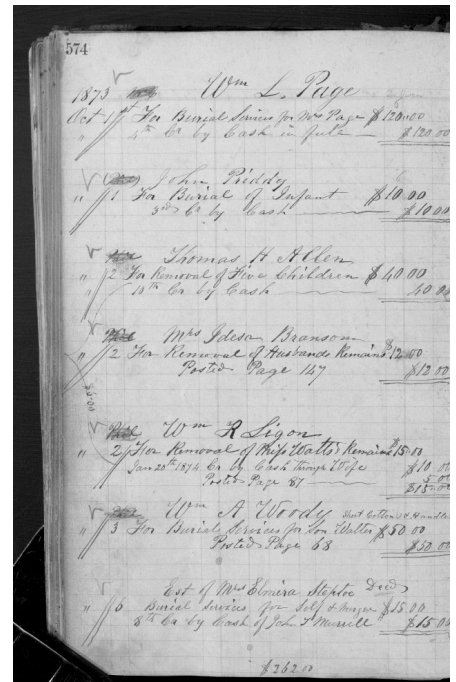 574
1873 Wm L. Page
Oct 1st For Burial Services for Mrs Page $120.00
" 4th Cr by Cash in full $120.00
John Priddy
" 1 For Burial of Infant $10.00
3rd Cr by Cash $10.00
Thomas H Allen
" 2 For Removal of Five Children $40.00
" 10th Cr by Cash 40.00
Mrs Idesa Bransom
" 2 For Removal of Husbands Remains $12.00
Posted Page 147 $12.00
Wm R Ligon
" 2 For Removal of Miss Watts Remains $15.00
Jan 20th 1874 Cr by Cash through Wife $10.00
Posted Page 81 5.00
$15.00
Wm A Woody
" 3 For Burial Services for Son Walter $50.00
Posted Page 68 $50.00
Est of Mrs Elmira Steptoe Decd
" 6 Burial Services for Self & $15.00
8th Cr by Cash of John F Murrill $15.00
$262.00